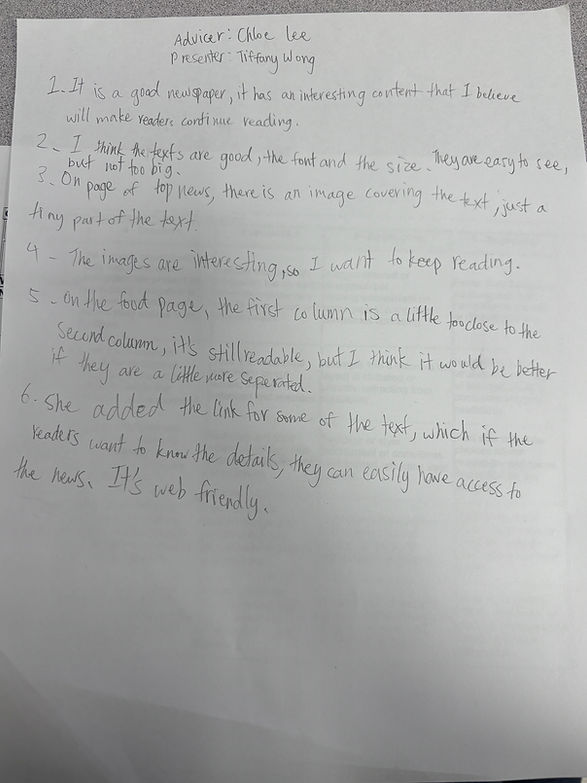 Advicer: Chloe Lee
Presenter: Tiffany Wong
1. It is a good newspaper, it has an interesting content that I believe
will make readers continue reading.
2. I think the texts are good, the font and the size. They are easy to see,
but not too big.
3. On page of top news, there is an image covering the text, just a
tiny part of the text.
4 - The images are interesting, so I want to keep reading.
5 - On the food page, the first column is a little too close to the
second column, it's still readable, but I think it would be better
if they are a little more seperated.
6. She added the link for some of the text, which if the
readers want to know the details, they can easily have access to
the news. It's web friendly.